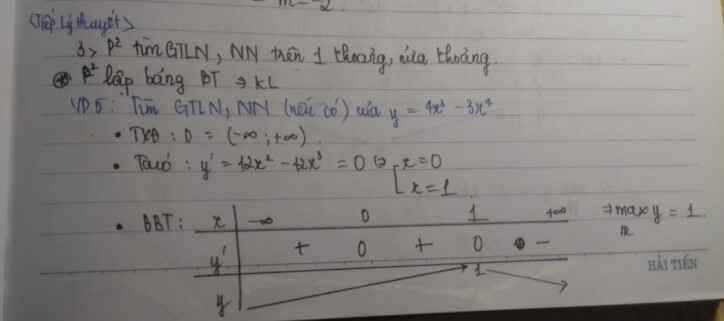 m=-2.
<Tiếp lý thuyết>
3> P² tìm GTLN, NN trên 1 khoảng, nửa khoảng.
⊛ P² lập bảng BT ⇒ KL
VD5: Tìm GTLN, NN (nếu có) của y = 4x³ - 3x⁴
• TXĐ : D = (-∞; +∞).
• Ta có : y' = 12x² - 12x³ = 0 ⇔ [ x=0
x=1.
• BBT: x -∞ 0 1 +∞ ⇒ max y = 1.
R
y' + 0 + 0 -
1
y
HẢI TIẾN